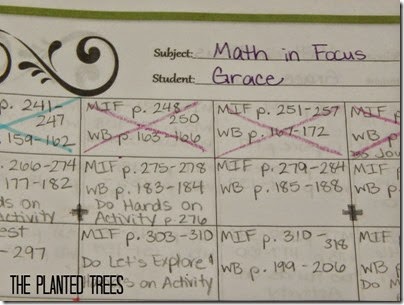 Subject: Math in Focus
Student: Grace
p. 241-
247
p. 159-162
MIF p. 248-
250
WB p. 163-166
MIF p. 251-257
WB p. 167-172
MIF p
WB p
. 266-274
177-182
ds on
Activity
MIF p. 275-278
WB p. 183-184
Do Hands on
Activity p. 276
MIF p. 279-284
WB p. 185-188
MIF
WB
est
-297
MIF p. 303-310
Do Let's Explore!
Hands on Activity
MIF p. 310-
318
WB p. 199-206
MIF
Do M
THE PLANTED TREES